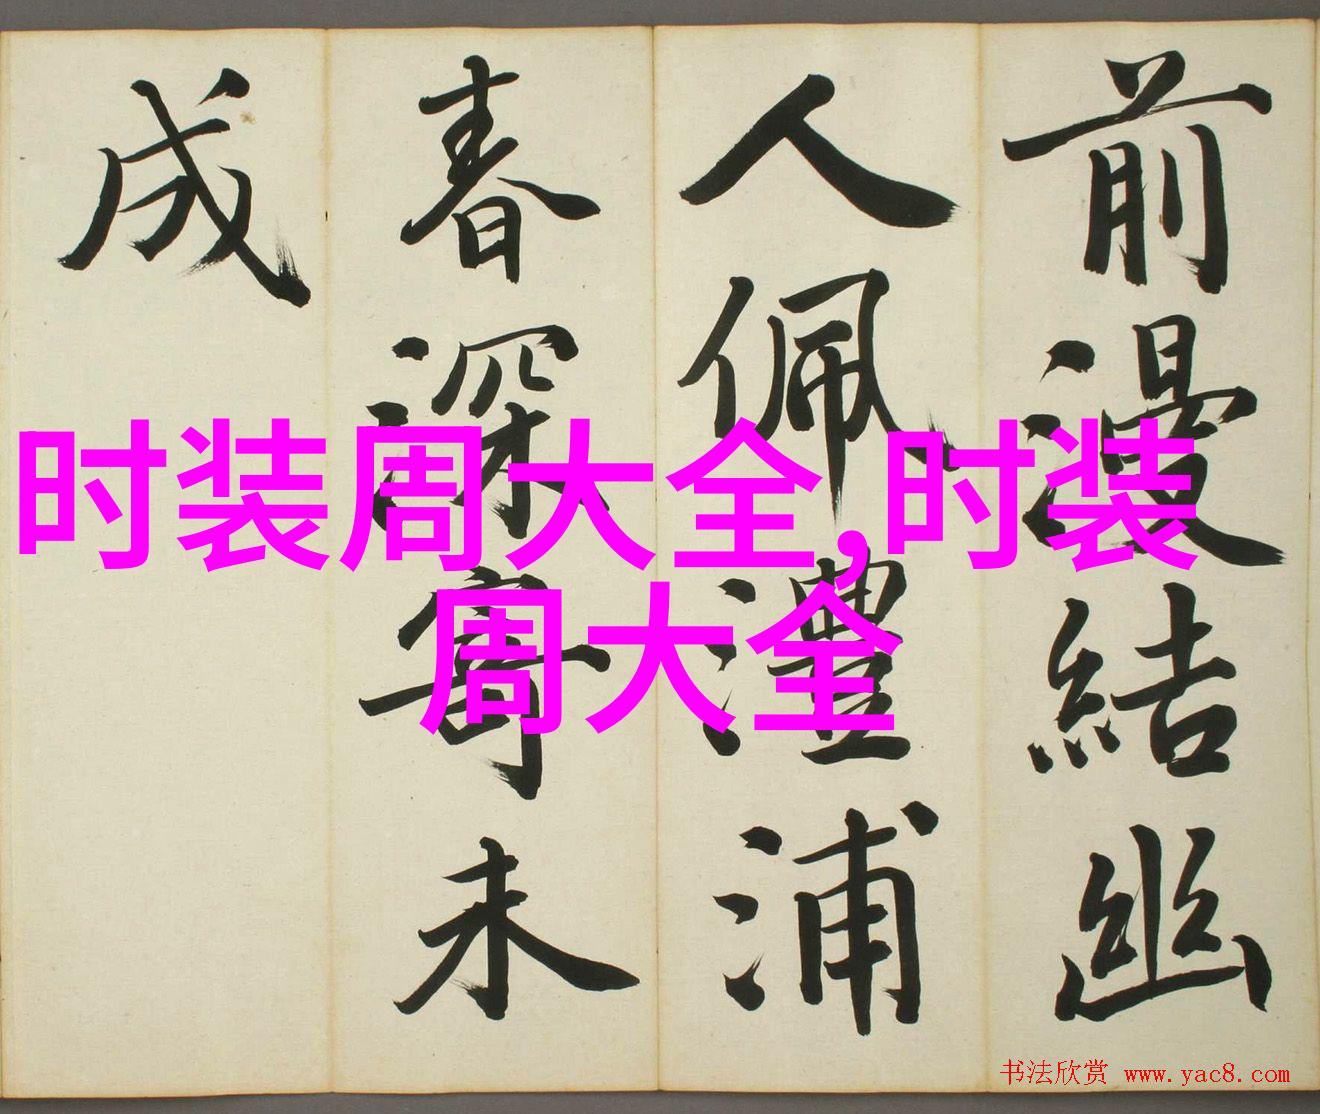 前漫結幽
人佩灃浦
春深寄未
成
时装周大全,时装
周大全
书法欣赏 www.yac8.com